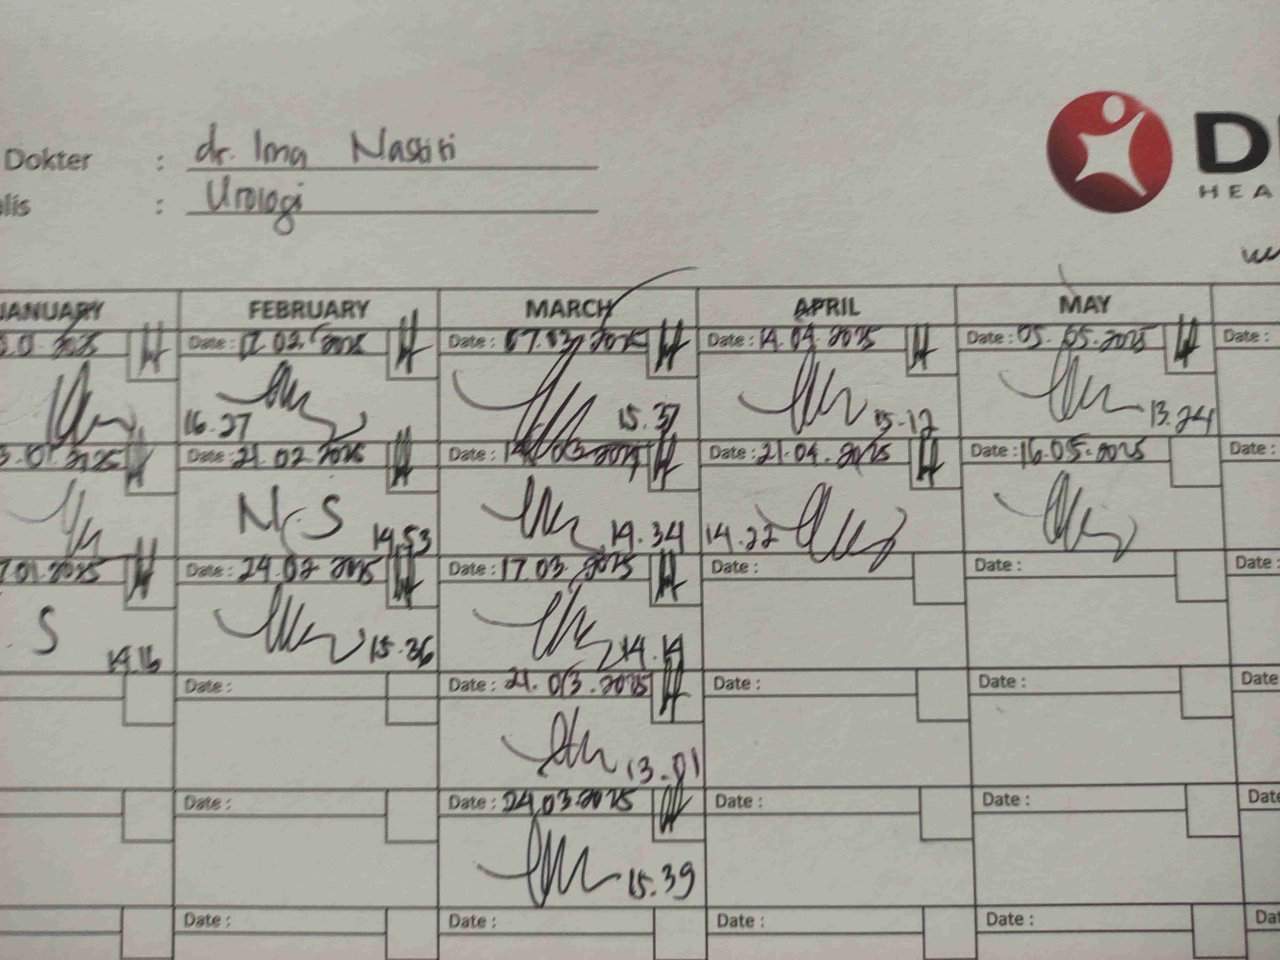 Dokter : dr. Ima Nastiti
lis : Urologi
D
HEA
JANUARY FEBRUARY MARCH APRIL MAY
Date : 17.02.2025 Date : 07.03.2025 Date : 14.04.2025 Date : 05.05.2025 Date :
16.27 15.37 15.12 13.24
.01.2025 Date : 21.02.2025 Date : Date : 21.04.2025 Date : 16.05.2025 Date :
N.S 14.53 14.34 14.22
.01.2025 Date : 24.02.2025 Date : 17.03.2025 Date : Date : Date :
. S 14.16 15.36 14.14
Date : Date : 21.03.2025 Date : Date : Date
13.01
Date : Date : 24.03.2025 Date : Date : Date
15.39
Date : Date : Date : Date : Dat